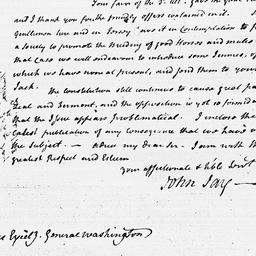 Your favor of the 3d. ult. gave me great
and I thank you for the friendly offers contained in it.
Gentlemen here and in Jersey have it in Contemplation to
a Society to promote the breeding of good Horses and mules
that Case we will endeavour to introduce some Jennies, of
which we have none at present, and send them to your
Jack. The constitution still continues to cause great pa
Zeal and Ferment, and the opposition is yet so formida
that the Issue appears problematical. I inclose the
latest publication of any consequence that we have o
the Subject. — adieu my dear Sir. I am with the
greatest Respect and Esteem
your affectionate & hble Servt
John Jay —
Excel.y General Washington